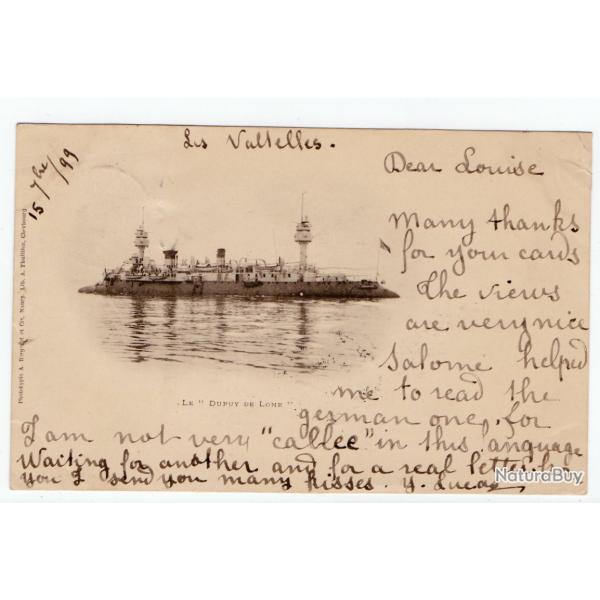 Les Valtelles.
15 7bre/99
Dear Louise
Many thanks
for your cards
The views
are very nice
Salome helped
me to read the
german one, for
I am not very "callée" in this language
Waiting for another and for a real letter
you I send you many kisses. Y. Lucas
LE "DUPUY DE LOME"
Phototypie A. Bergeret et Cie, Nancy. Lib. A. Cherbourg
NaturaBuy